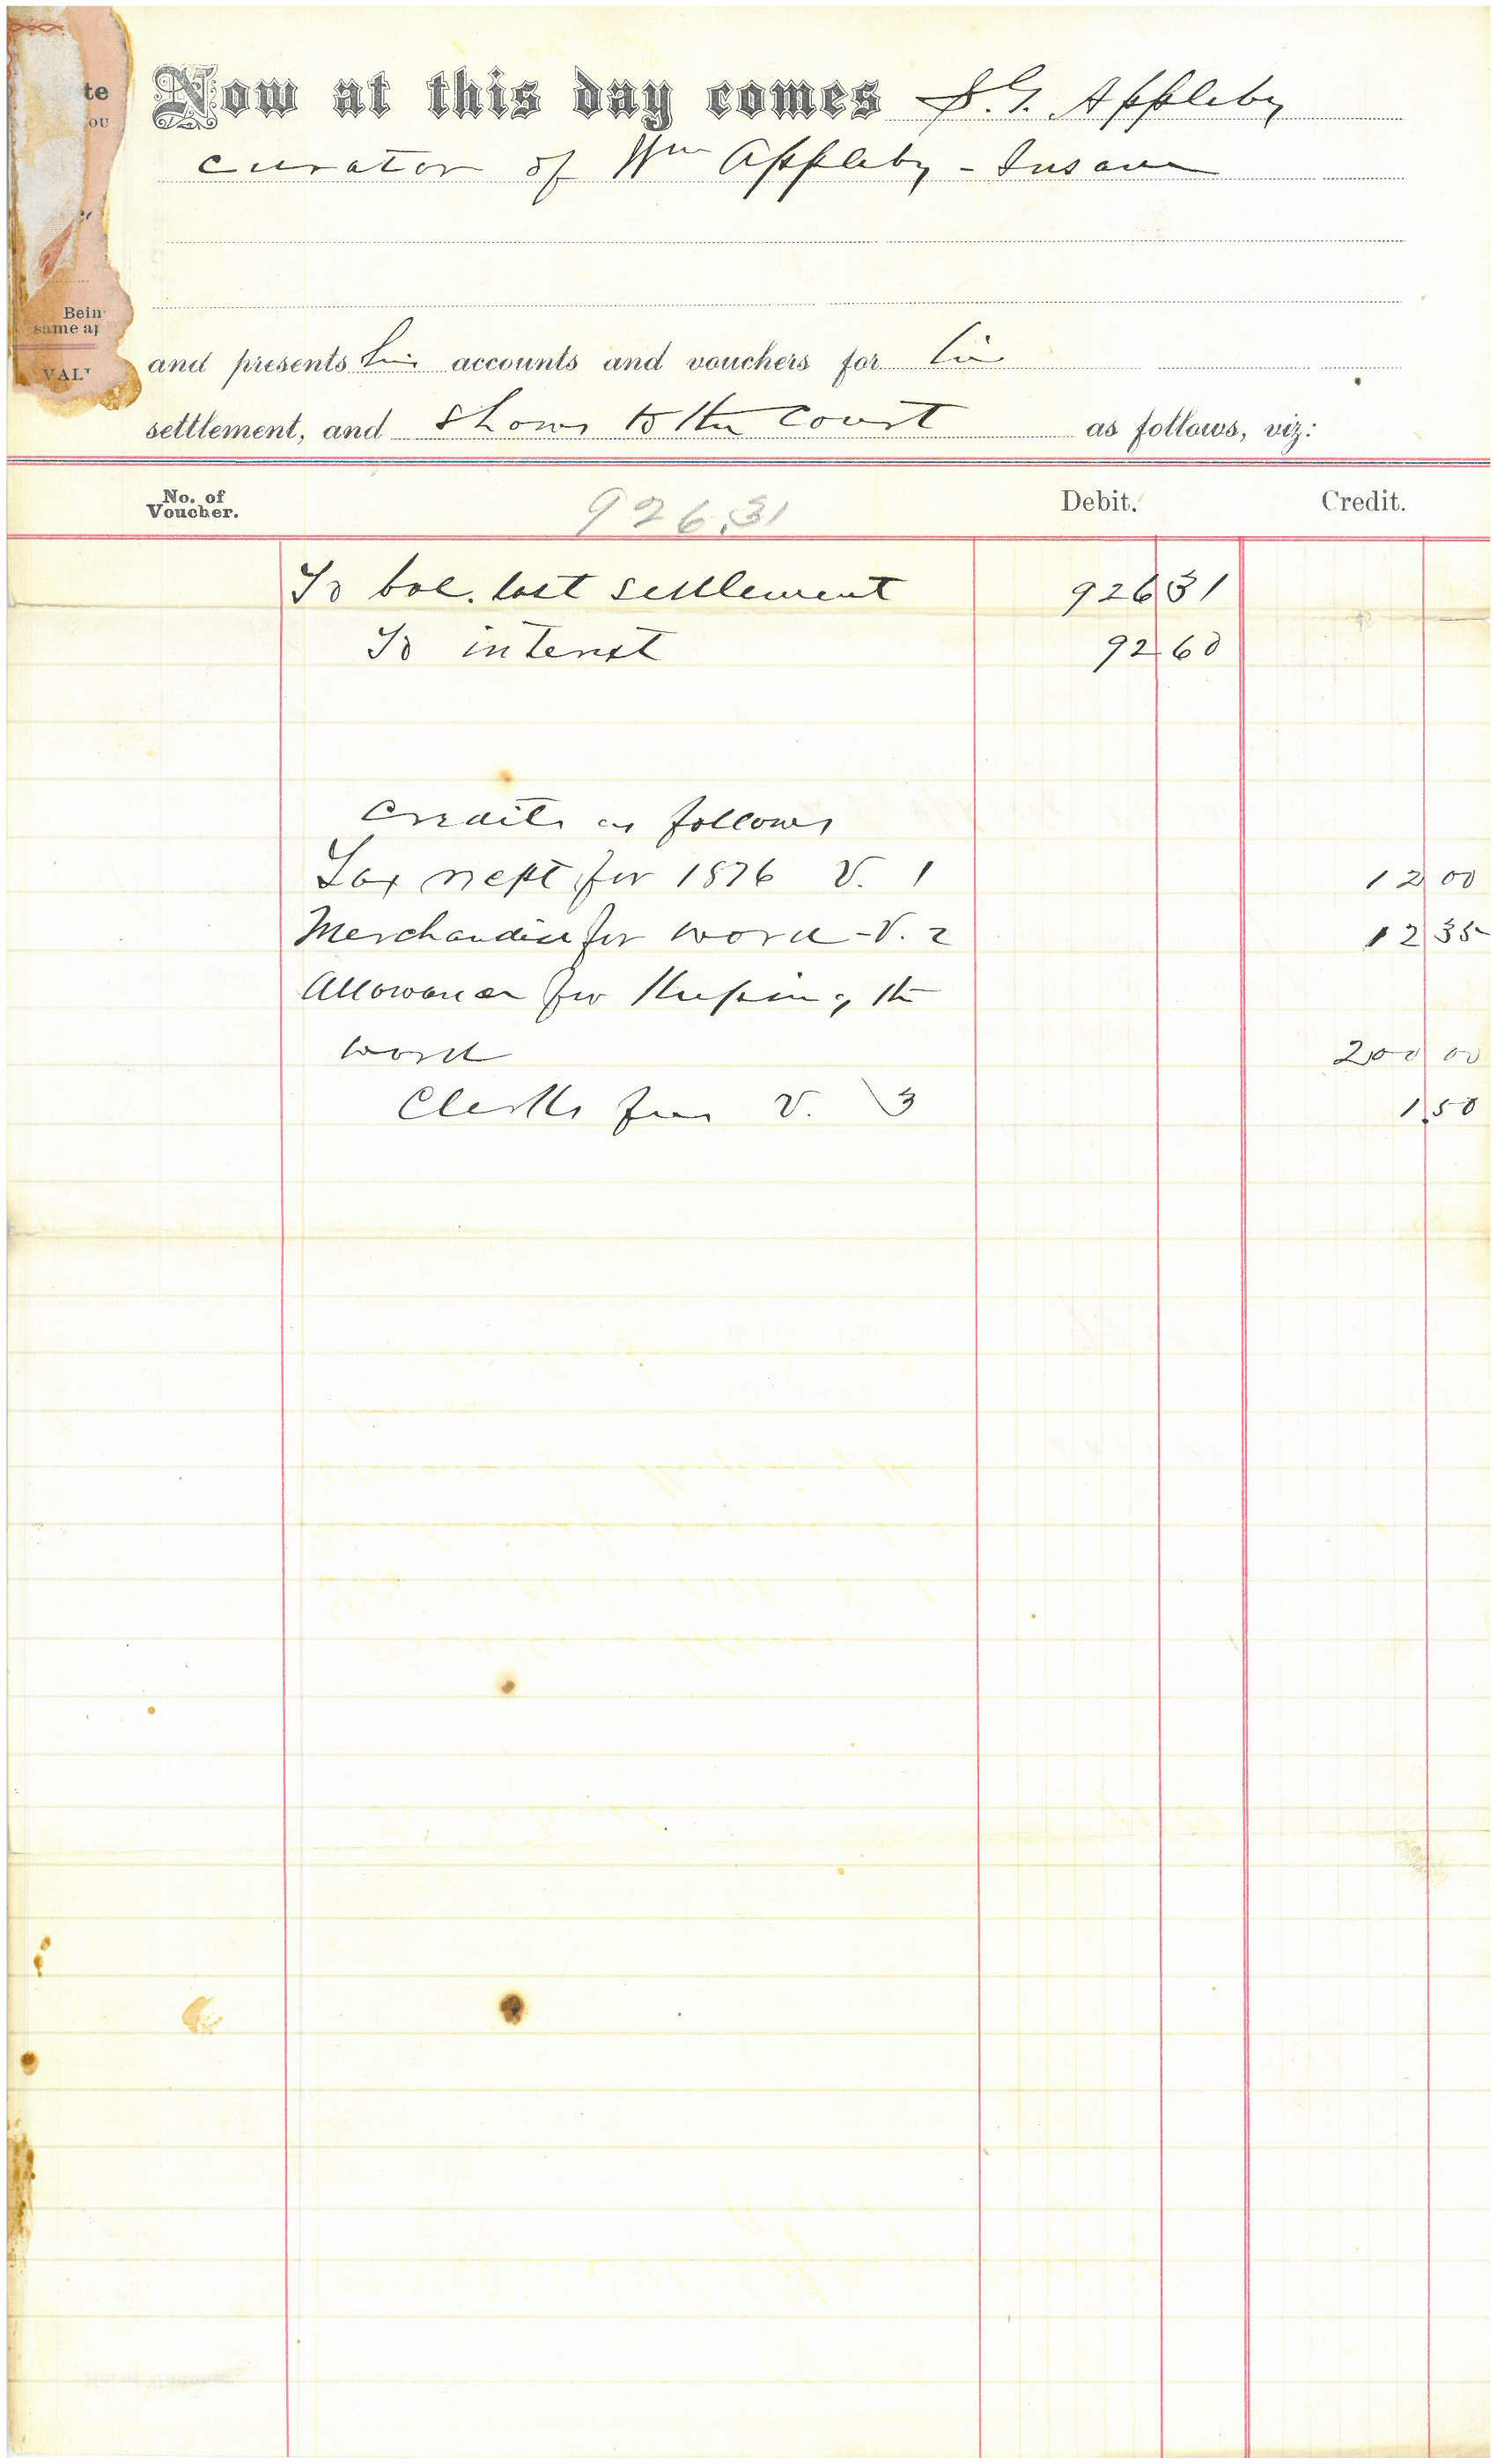 te
ou
Bein
same ap
VAL
Now at this day comes S. G. Appleby
curator of Wm Appleby - Insane
and presents his accounts and vouchers for his
settlement, and shows to the Court as follows, viz:
No. of Voucher. 926.31 Debit. Credit.
To bal. last settlement 926 31
To interest 92 60
Credits as follows
Tax recpt for 1876 V. 1 12 00
Merchandise for ward - V. 2 12 35
Allowance for Keeping the
ward 200 00
Clerks fees V. 3 1.50